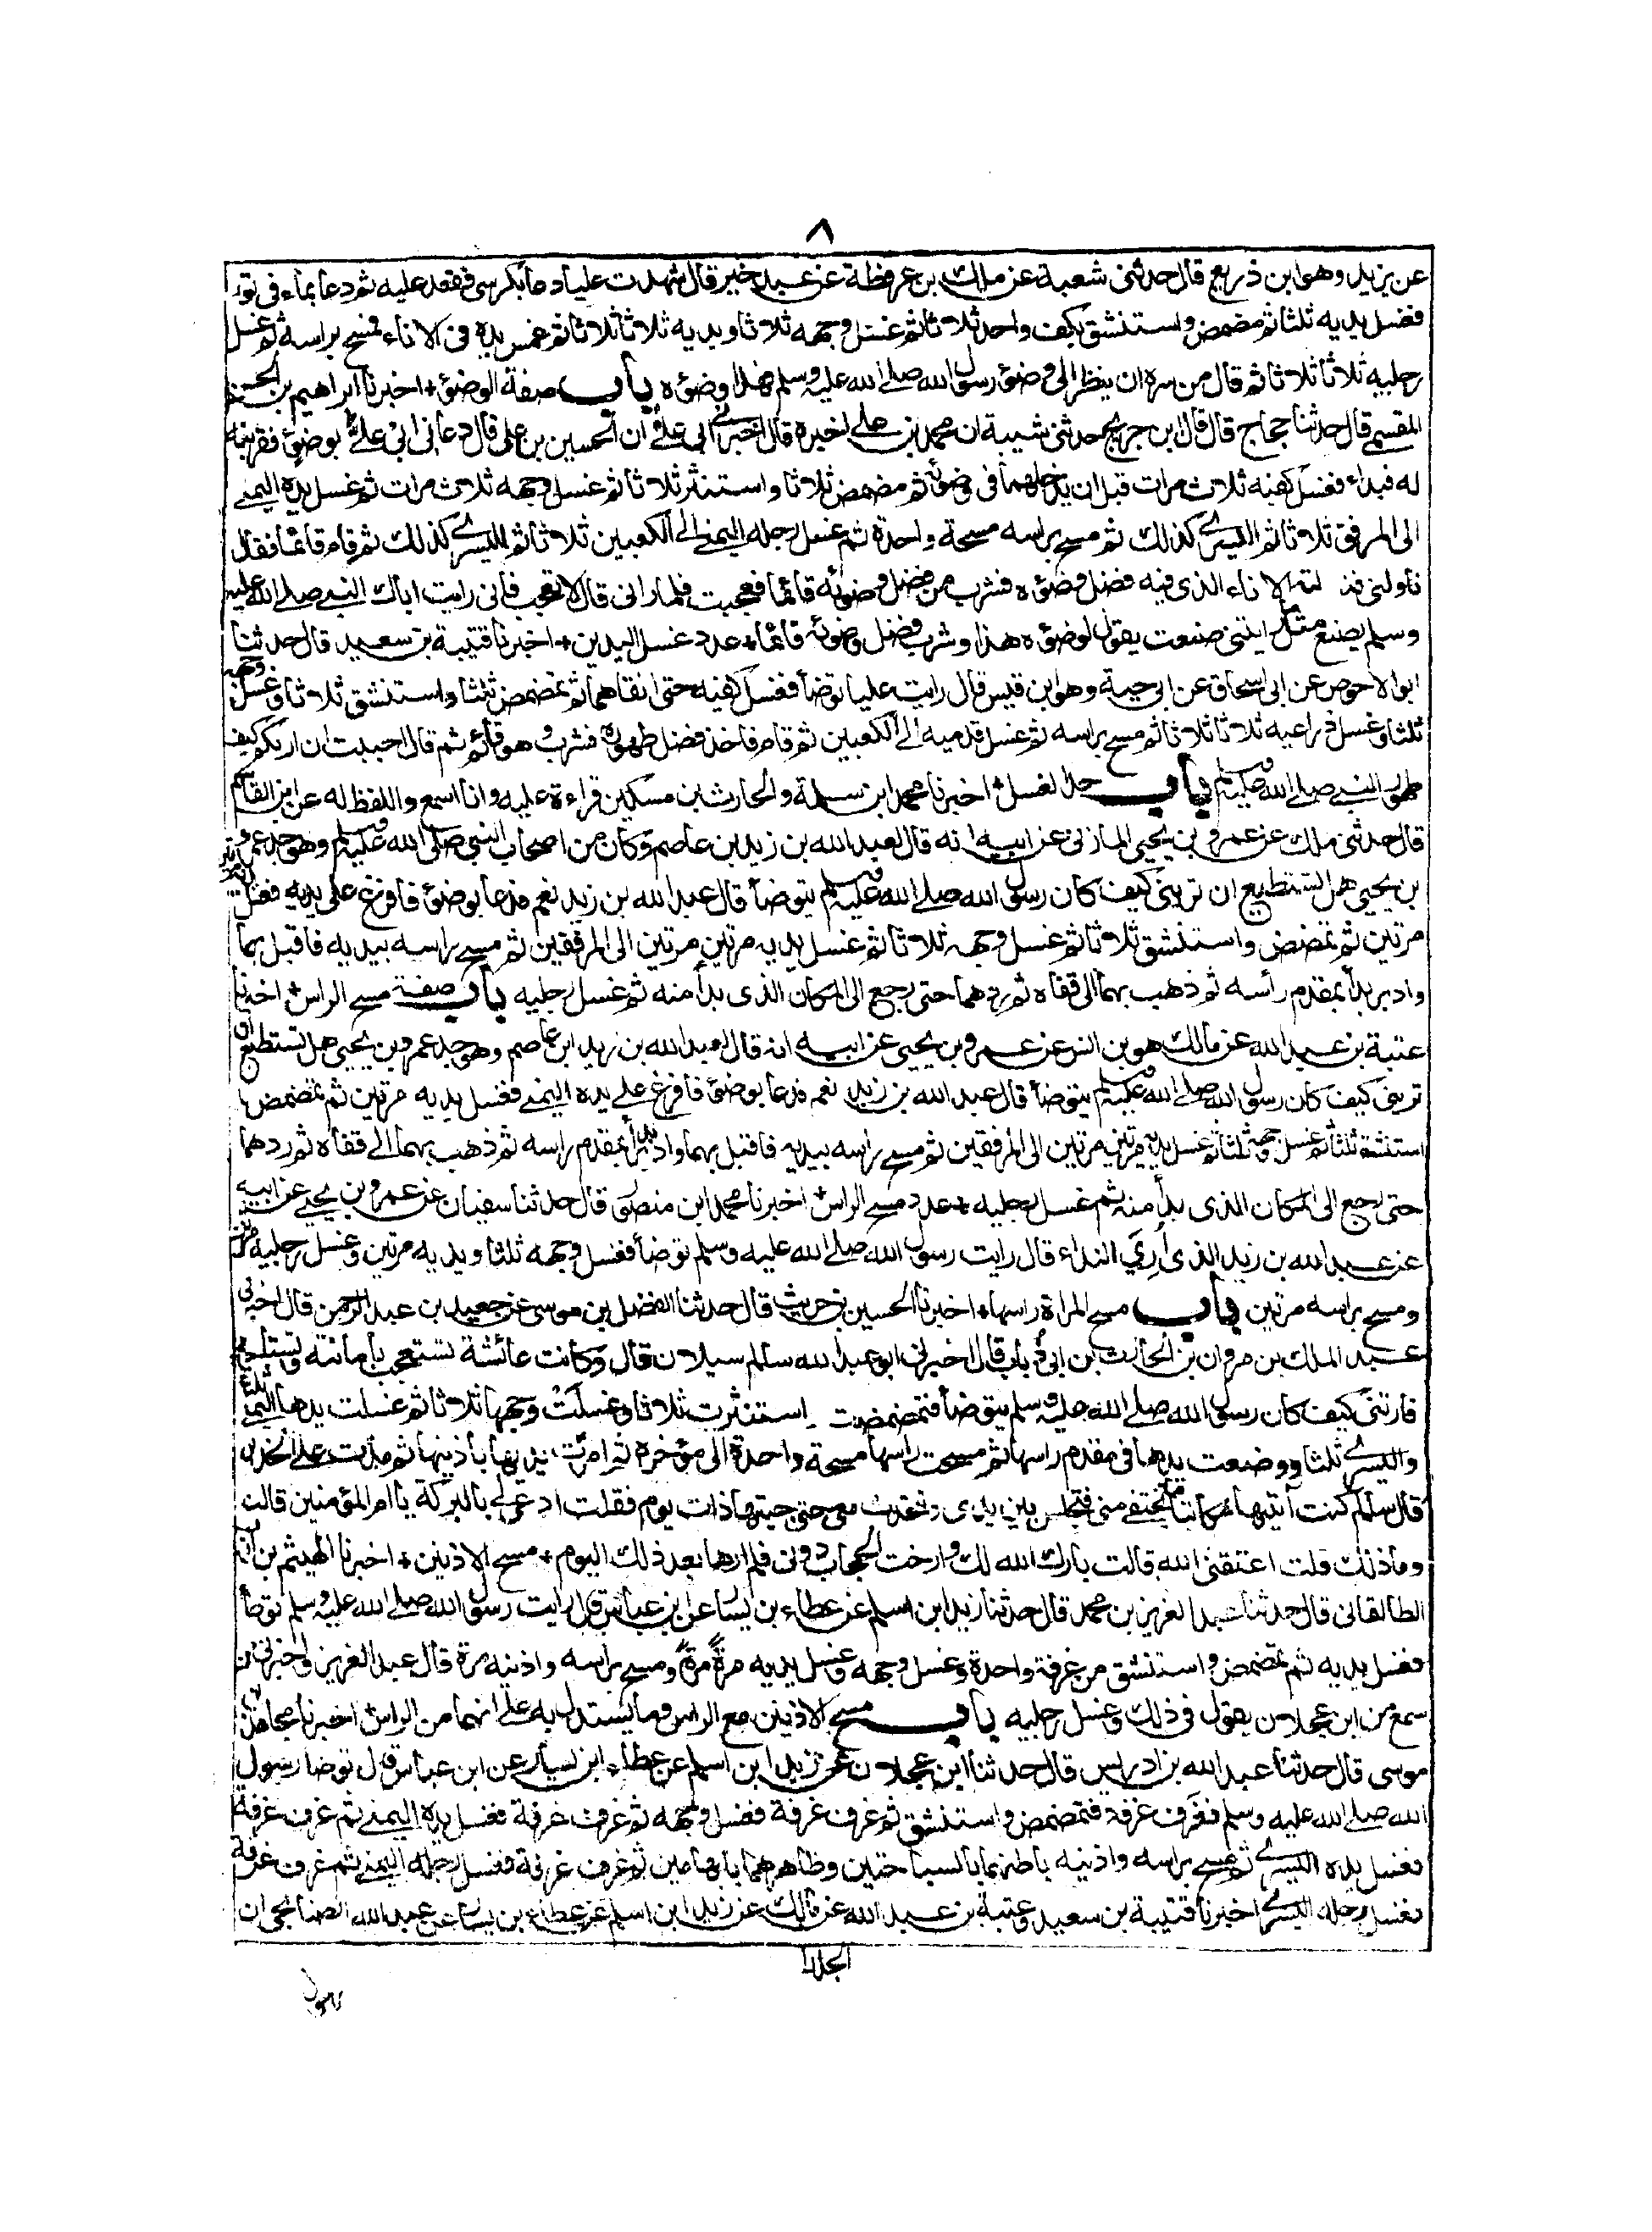 ٨
عن يزيد وهو ابن ذريع قال حدثنى شعبة عن ملك بن عرفطة عن عبد خير قال شهدت عليا دعا بكرسى فقعد عليه ثم دعا بماء فى تور
فغسل يديه ثلثا ثم مضمض واستنشق بكف واحد ثلاثا ثم غسل وجهه ثلاثا ويديه ثلاثا ثلاثا ثم غمس يده فى الاناء فمسح براسه ثم غسل
رجليه ثلاثا ثلاثا ثم قال من سره ان ينظر الى وضوء رسول الله صلے الله عليه وسلم فهذا وضوءه باب صفة الوضوء + اخبرنا ابراهيم بن الحسن
المقسمى قال حدثنا حجاج قال قال ابن جريج حدثنى شيبة ان محمد بن على اخبره قال اخبرنى ابى على ان الحسين بن على قال دعانى ابى علىّ بوضوء فقربته
له فبداء فغسل كفيه ثلاث مرات قبل ان يدخلهما فى وضوئه ثم مضمض ثلاثا واستنثر ثلاثا ثم غسل وجهه ثلاث مرات ثم غسل يده اليمنے
الى المرفق ثلاثا ثم اليسرے كذلك ثم مسح براسه مسحة واحدة ثم غسل رجله اليمنے الى الكعبين ثلاثا ثم اليسرے كذلك ثم قام قائما فقال
ناولنى فناولته الاناء الذى فيه فضل وضوءه فشرب من فضل وضوئه قائما فعجبت فلما رانى قال لا تعجب فانى رايت اباك النبے صلے الله عليه
وسلم يصنع مثل ما رايتنى صنعت يقول لوضوءه هذا وشرب فضل وضوئه قائما + عدد غسل اليدين + اخبرنا قتيبة بن سعيد قال حدثنا
ابو الاحوص عن ابى اسحاق عن ابى حية وهو ابن قيس قال رايت عليا توضأ فغسل كفيه حتى انقاهما ثم تمضمض ثلثا واستنشق ثلاثا وغسل وجهه
ثلثا وغسل ذراعيه ثلاثا ثلاثا ثم مسح براسه ثم غسل قدميه الى الكعبين ثم قام فاخذ فضل طهوره فشرب وهو قائم ثم قال احببت ان اريكم كيف
طهور النبے صلے الله عليه وسلم باب حد الغسل + اخبرنا محمد ابن سلمة والحارث بن مسكين قراءة عليه وانا اسمع واللفظ له عن ابن القاسم
قال حدثنى ملك عن عمرو بن يحيى المازنى عن ابيه انه قال لعبد الله بن زيد بن عاصم وكان من اصحاب النبى صلى الله عليه وسلم وهو جد عمرو
بن يحيى هل تستطيع ان ترينى كيف كان رسول الله صلے الله عليه وسلم يتوضأ قال عبد الله بن زيد نعم فدعا بوضوء فافرغ على يديه فغسل
مرتين ثم تمضمض واستنشق ثلاثا ثم غسل وجهه ثلاثا ثم غسل يديه مرتين مرتين الى المرفقين ثم مسح براسه بيديه فاقبل بهما
وادبر بدأ بمقدم رأسه ثم ذهب بهما الى قفاه ثم ردهما حتى رجع الى المكان الذى بدأ منه ثم غسل رجليه باب صفة مسح الراس + اخبرنا
عتبة بن عبد الله عن مالك هو بن انس عن عمرو بن يحيى عن ابيه انه قال لعبد الله بن زيد ابن عاصم وهو جد عمرو بن يحيى هل تستطيع ان
ترينى كيف كان رسول الله صلے الله عليه وسلم يتوضأ قال عبد الله بن زيد نعم فدعا بوضوء فافرغ على يده اليمنے فغسل يديه مرتين ثم تمضمض و
استنشق ثلثا ثم غسل وجهه ثلثا ثم غسل يديه مرتين مرتين الى المرفقين ثم مسح براسه بيديه فاقبل بهما وادبر بدأ بمقدم راسه ثم ذهب بهما الى قفاه ثم ردهما
حتى رجع الى المكان الذى بدأ منه ثم غسل رجليه + عدد مسح الراس + اخبرنا محمد ابن منصور قال حدثنا سفيان عن عمرو بن يحيے عن ابيه
عن عبد الله بن زيد الذى أُرِىَ النداء قال رايت رسول الله صلے الله عليه وسلم توضأ فغسل وجهه ثلثا ويديه مرتين وغسل رجليه مرتين
ومسح براسه مرتين باب مسح المراة راسها + اخبرنا الحسين بن حريث قال حدثنا الفضل بن موسى عن جعيد بن عبد الرحمن قال اخبرنى
عبد الملك بن مروان بن الحارث بن ابى ذباب قال اخبرنى ابو عبد الله سالم سبلان قال وكانت عائشة تستعجب بأمانته وتستاجره
فارتنى كيف كان رسول الله صلے الله عليه وسلم يتوضأ فتمضمضت واستنثرت ثلاثا وغسلت وجهها ثلاثا ثم غسلت يدها اليمنے ثلثا
واليسرے ثلثا ووضعت يدها فى مقدم راسها ثم مسحت راسها مسحة واحدة الى مؤخره ثم امرّت يديها بأذنيها ثم مرت على الخدين
قال سالم كنت آتيها مكاتبا ما تختفے منى فتجلس بين يدى وتتحدث معى حتى جيتها ذات يوم فقلت ادعى لے بالبركة يا ام المؤمنين قالت
وما ذلك قلت اعتقنى الله قالت بارك الله لك وارخت الحجاب دونى فلم ارها بعد ذلك اليوم + مسح الاذنين + اخبرنا الهيثم بن ايوب
الطالقانى قال حدثنا عبد العزيز بن محمد قال حدثنا زيد ابن اسلم عن عطاء بن يسار عن ابن عباس قال رايت رسول الله صلے الله عليه وسلم توضأ
فغسل يديه ثم تمضمض واستنشق من غرفة واحدة وغسل وجهه وغسل يديه مرةً مرةً ومسح براسه واذنيه مرة قال عبد العزيز واخبرنى من
سمع من ابن عجلان يقول فى ذلك وغسل رجليه باب مسح الاذنين مع الراس وما يستدل به على انهما من الراس + اخبرنا مجاهد بن
موسى قال حدثنا عبد الله بن ادريس قال حدثنا ابن عجلان عن زيد ابن اسلم عن عطاء ابن يسار عن ابن عباس قال توضا رسول
الله صلے الله عليه وسلم فغرف غرفة فتمضمض واستنشق ثم غرف غرفة فغسل وجهه ثم غرف غرفة فغسل يده اليمنے ثم غرف غرفة
فغسل يده اليسرے ثم مسح براسه واذنيه باطنهما بالسباحتين وظاهرهما بابهاميه ثم غرف غرفة فغسل رجله اليمنے ثم غرف غرفة
فغسل رجله اليسرے اخبرنا قتيبة بن سعيد وعتبة بن عبد الله عن مالك عن زيد ابن اسلم عن عطاء بن يسار عن عبد الله الصنابحى ان
الجلد ١
رسول